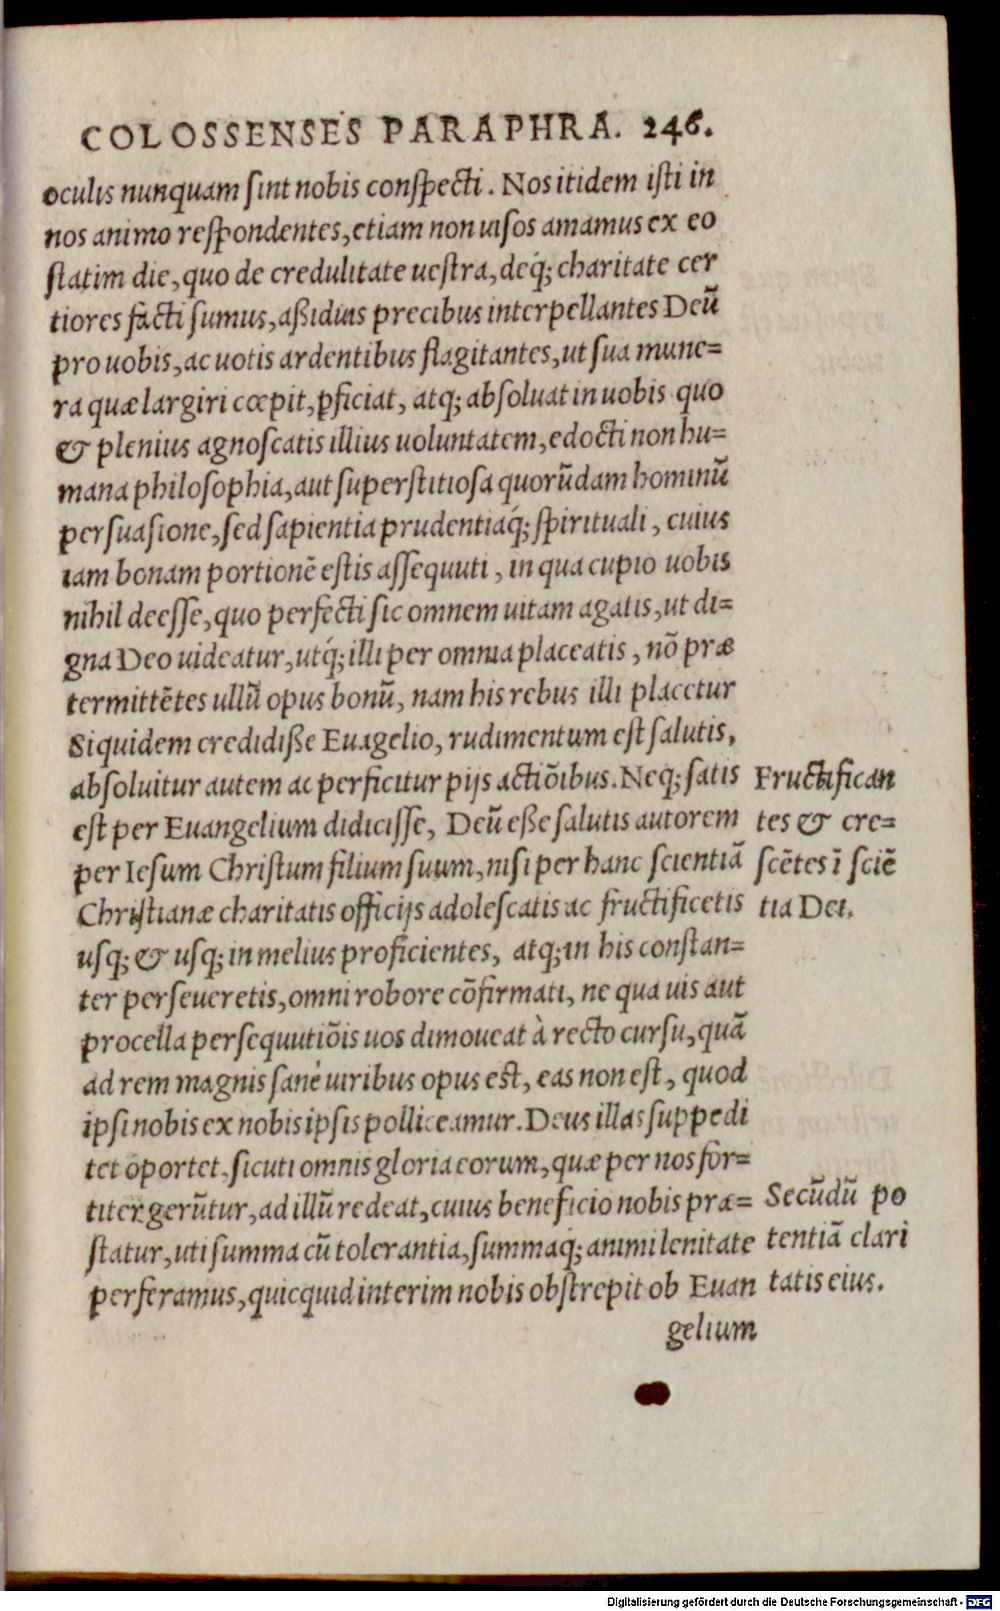 COLOSSENSES PARAPHRA. 246.
oculis nunquam sint nobis conspecti. Nos itidem isti in
nos animo respondentes, etiam non uisos amamus ex eo
statim die, quo de credulitate uestra, deq́; charitate cer
tiores facti sumus, aßiduis precibus interpellantes Deũ
pro uobis, ac uotis ardentibus flagitantes, ut sua mune=
ra quæ largiri cœpit, ꝑficiat, atq; absoluat in uobis quo
& plenius agnoscatis illius uoluntatem, edocti non hu=
mana philosophia, aut superstitiosa quorũdam hominũ
persuasione, sed sapientia prudentiaq́; spirituali, cuius
iam bonam portionẽ estis assequuti, in qua cupio uobis
nihil deesse, quo perfecti sic omnem uitam agatis, ut di=
gna Deo uideatur, utq́; illi per omnia placeatis, nõ præ
termittẽtes ullũ opus bonũ, nam his rebus illi placetur
Siquidem credidiße Euagelio, rudimentum est salutis,
absoluitur autem ac perficitur pijs actiõibus. Neq; satis
est per Euangelium didicisse, Deũ eße salutis autorem
per Iesum Christum filium suum, nisi per hanc scientiã
Christianæ charitatis officijs adolescatis ac fructificetis
usq; & usq; in melius proficientes, atq; in his constan=
ter perseueretis, omni robore cõfirmati, ne qua uis aut
procella persequutiõis uos dimoueat à recto cursu, quã
ad rem magnis sanè uiribus opus est, eas non est, quod
ipsi nobis ex nobis ipsis polliceamur. Deus illas suppedi
tet oportet, sicuti omnis gloria eorum, quæ per nos for=
titer gerũtur, ad illũ redeat, cuius beneficio nobis præ=
statur, uti summa cũ tolerantia, summaq́; animi lenitate
perferamus, quicquid interim nobis obstrepit ob Euan
gelium
Fructifican
tes & cre=
scẽtes ĩ sciẽ
tia Dei.
Secũdũ po
tentiã clari
tatis eius.
Digitalisierung gefördert durch die Deutsche Forschungsgemeinschaft - DFG